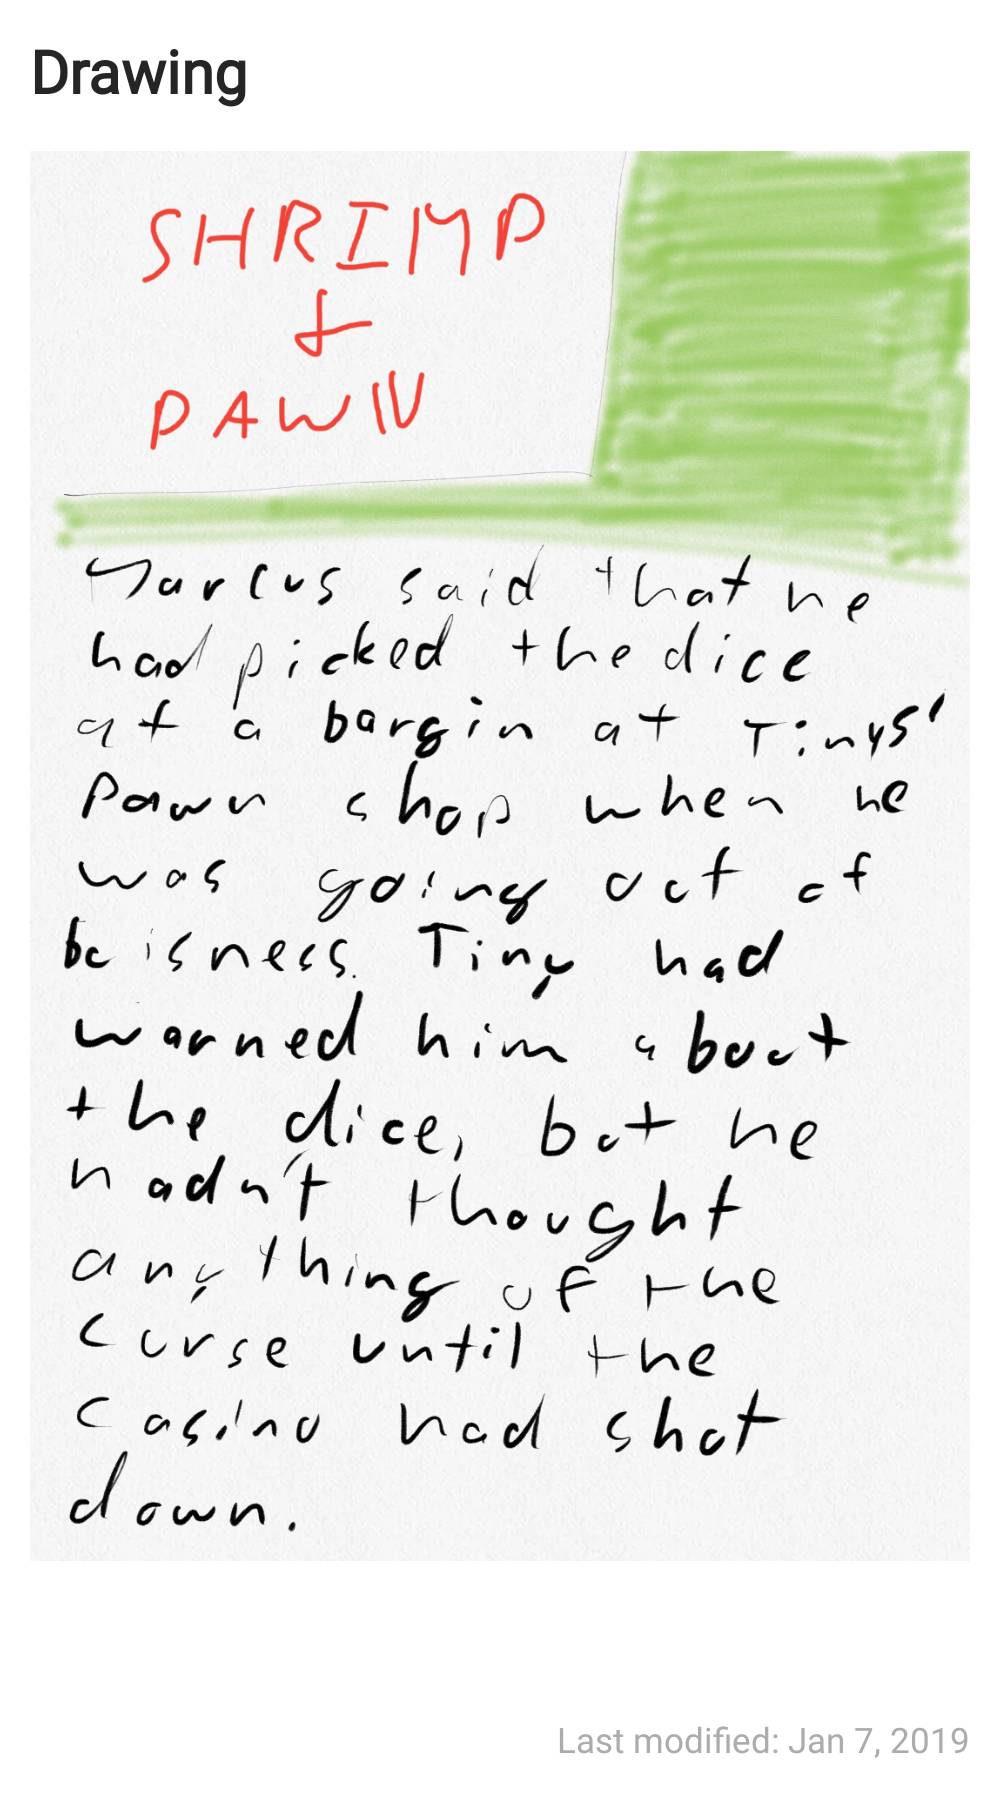 Drawing
SHRIMP
&
PAWN
Marcus said that he
had picked the dice
at a bargin at Tinys'
Pawn shop when he
was going out of
buisness. Tiny had
warned him about
the dice, but he
hadn't thought
anything of the
curse until the
casino had shut
down.
Last modified: Jan 7, 2019